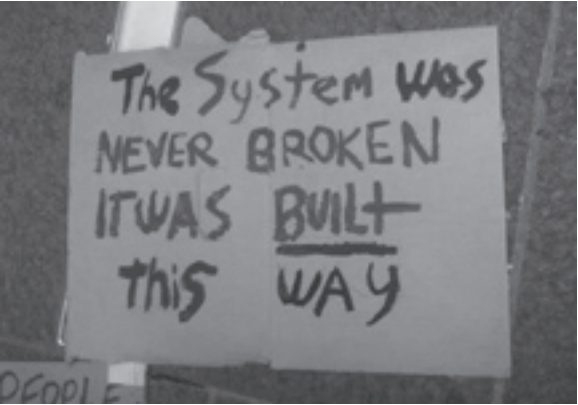 The System was
NEVER BROKEN
IT WAS BUILt
this WAY
PEOPLE